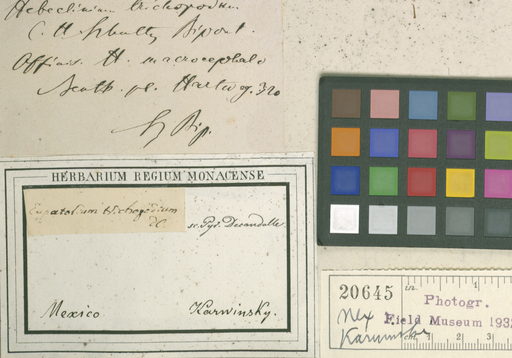 Hebeclinium trichopodum
C. H. Schultz Bipont.
Affine H. macrocephalo
Benth. pl. Hartweg. 320
Sz Bip.
HERBARIUM REGIUM MONACENSE
Eupatorium trichopodium
DC.
sc. Pyr. Decandolle
Mexico
Karwinsky.
20645
Mex
Karwinski
Photogr.
Field Museum 193
in.
cm.
1
2
3